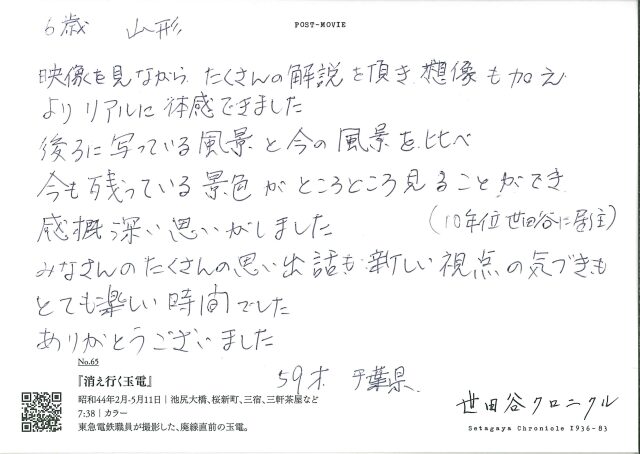 POST-MOVIE
6歳 山形
映像を見ながら たくさんの解説を頂き 想像も加え
より リアルに 体感できました
後ろに写っている風景と今の風景を比べ
今も残っている景色がところどころ見ることができ
感慨深い思いがしました
(10年位世田谷に居住)
みなさんのたくさんの思い出話も新しい視点の気づきも
とても楽しい時間でした
ありがとうございました
59才 千葉県
No.65
『消え行く玉電』
昭和44年2月-5月11日｜池尻大橋、桜新町、三宿、三軒茶屋など
7:38｜カラー
東急電鉄職員が撮影した、廃線直前の玉電。
世田谷クロニクル
Setagaya Chronicle 1936-83